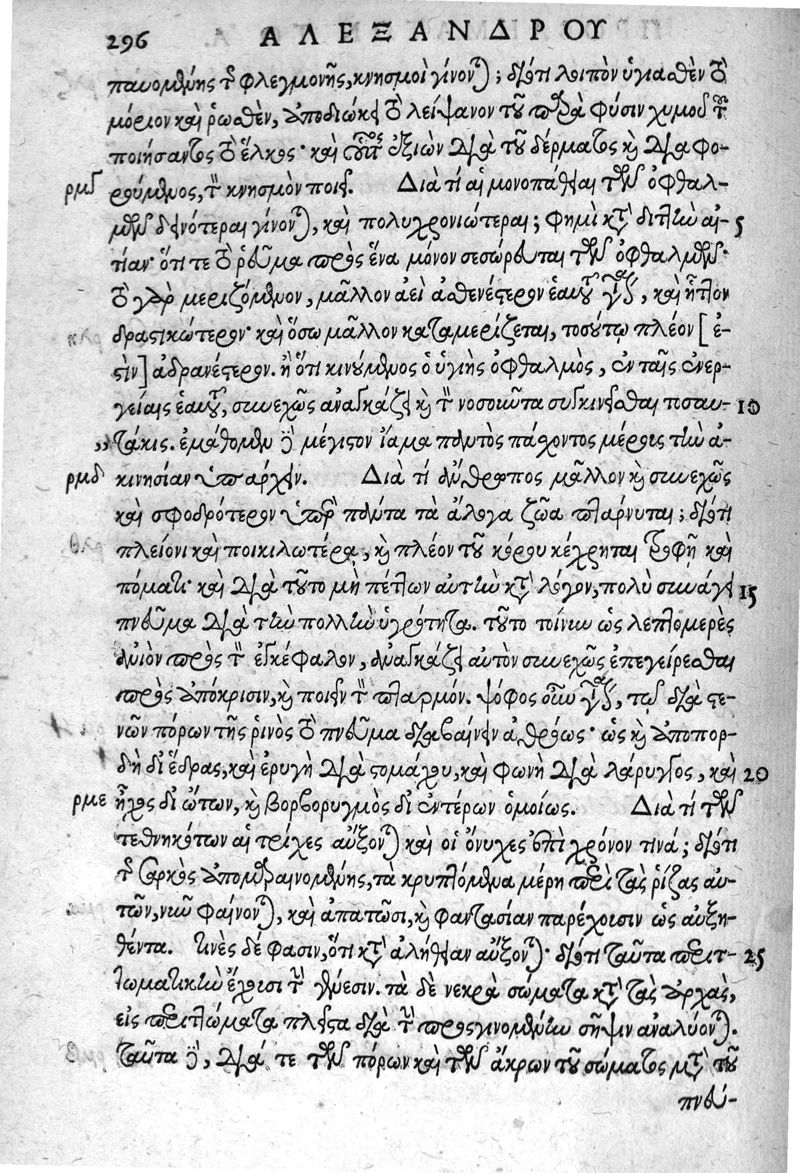 296 ΑΛΕΞΑΝΔΡΟΥ
παυομένης τῆς φλεγμονῆς, κνησμοὶ γίνονται; διότι λοιπὸν ὑγιασθὲν τὸ
μόριον καὶ ῥωσθὲν, ἀποδιώκει τὸ λείψανον τοῦ παρὰ φύσιν χυμοῦ τοῦ
ποιήσαντος τὸ ἕλκος· καὶ οὗτος ἐξιὼν διὰ τοῦ δέρματος καὶ διαφο-
ρμγ ρούμενος, τὸν κνησμὸν ποιεῖ. Διὰ τί αἱ μονοπάθειαι τῶν ὀφθαλ-
μῶν δεινότεραι γίνονται, καὶ πολυχρονιώτεραι; φημὶ κατὰ διττὴν αἰ- 5
τίαν· ὅτι τε τὸ ῥεῦμα πρὸς ἕνα μόνον σεσώρευται τῶν ὀφθαλμῶν·
τὸ γὰρ μεριζόμενον, μᾶλλον ἀεὶ ἀσθενέστερον ἑαυτοῦ γίνεται, καὶ ἧττον
δραστικώτερον· καὶ ὅσω μᾶλλον καταμερίζεται, τοσούτῳ πλέον [ἐ-
στὶν] ἀδρανέστερον. ἢ ὅτι κινούμενος ὁ ὑγιὴς ὀφθαλμὸς, ἐν ταῖς ἐνερ-
γείαις ἑαυτοῦ, συνεχῶς ἀναγκάζει καὶ τὸν νοσοῦντα συγκινεῖσθαι τισαυ- 10
„τάκις. ἐμάθομεν δὲ μέγιστον ἴαμα παντὸς πάσχοντος μέρους τὴν ἀ-
ρμδ κινησίαν ὑπάρχειν. Διὰ τί ἄνθρωπος μᾶλλον καὶ συνεχῶς
καὶ σφοδρότερον ὑπὲρ πάντα τὰ ἄλογα ζῶα πτάρνυται; διότι
πλείονι καὶ ποικιλωτέρᾳ, καὶ πλέον τοῦ κόρου κέχρηται τροφῇ καὶ
πόματι· καὶ διὰ τοῦτο μὴ πέττων αὐτὴν κατὰ λόγον, πολὺ συνάγει 15
πνεῦμα διὰ τὴν πολλὴν ὑγρότητα. τοῦτο τοίνυν ὡς λεπτομερὲς
ἀνιὸν πρὸς τὸν ἐγκέφαλον, ἀναγκάζει αὐτὸν συνεχῶς ἐπεγείρεσθαι
πρὸς ἀπόκρισιν, καὶ ποιεῖν τὸν πταρμόν. ψόφος οὖν γίνεται, τῷ διὰ στε-
νῶν πόρων τῆς ῥινὸς τὸ πνεῦμα διαβαίνειν ἀθρόως· ὡς καὶ ἀποπορ-
δὴ δι ἕδρας, καὶ ἐρυγὴ διὰ στομάχου, καὶ φωνὴ διὰ λάρυγγος, καὶ 20
ρμε ἦχος δι ὤτων, καὶ βορβορυγμὸς δι ἐντέρων ὁμοίως. Διὰ τί τῶν
τεθνηκότων αἱ τρίχες αὔξονται καὶ οἱ ὄνυχες ἐπὶ χρόνον τινά; διότι
τῆς σαρκὸς ἀπομαραινομένης, τὰ κρυπτόμενα μέρη περὶ τὰς ῥίζας αὐ-
τῶν, νῦν φαίνονται, καὶ ἀπατῶσι, καὶ φαντασίαν παρέχουσιν ὡς αὐξη-
θέντα. τινὲς δέ φασιν, ὅτι κατὰ ἀλήθειαν αὔξονται· διότι ταῦτα περιτ- 25
τωματικὴν ἔχουσι τὴν γένεσιν. τὰ δὲ νεκρὰ σώματα κατὰ τὰς ἀρχὰς,
εἰς περιττώματα πλεῖστα διὰ τὴν προσγινομένην σῆψιν ἀναλύονται.
ταῦτα δὲ, διά τε τῶν πόρων καὶ τῶν ἄκρων τοῦ σώματος μετὰ τοῦ
πνεύ-